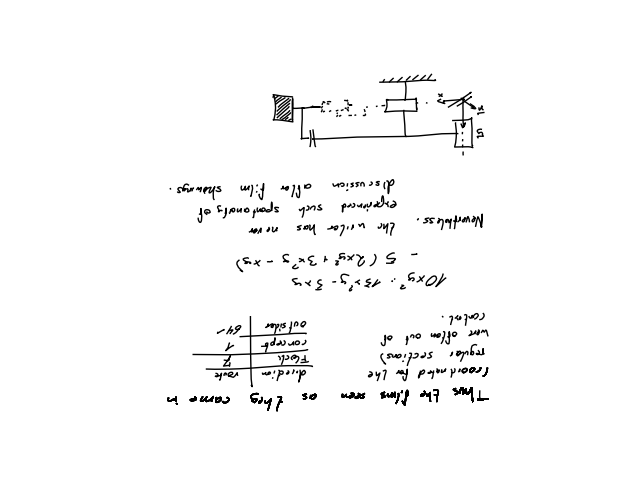 Thus the films seen as they came in
(coordinated for the
regular sections)
were often out of
control.
direction route
Flock 7
concept 1
outsider 64-
10xy² · 13x²y - 3xy
- 5 (2xy² + 3x²y - xy)
Nevertheless. the writer has never
experienced such spontanaty of
discussion after film showings.